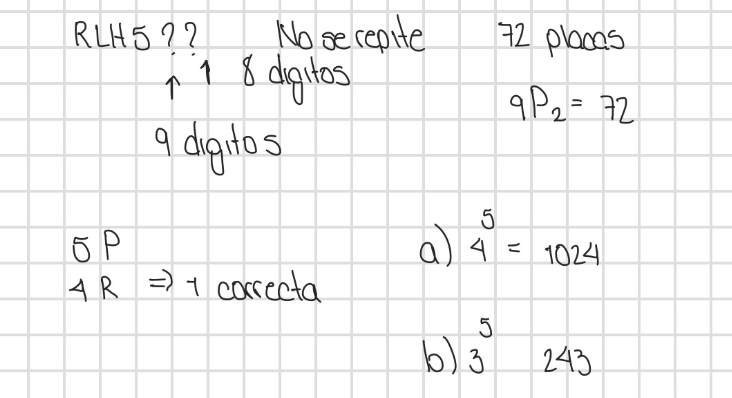 RLH5?? No se repite 72 placas
↑ ↑ 8 dígitos
9P₂ = 72
9 dígitos
5 P
4 R ⇒ 1 correcta
a) 4⁵ = 1024
b) 3⁵ 243